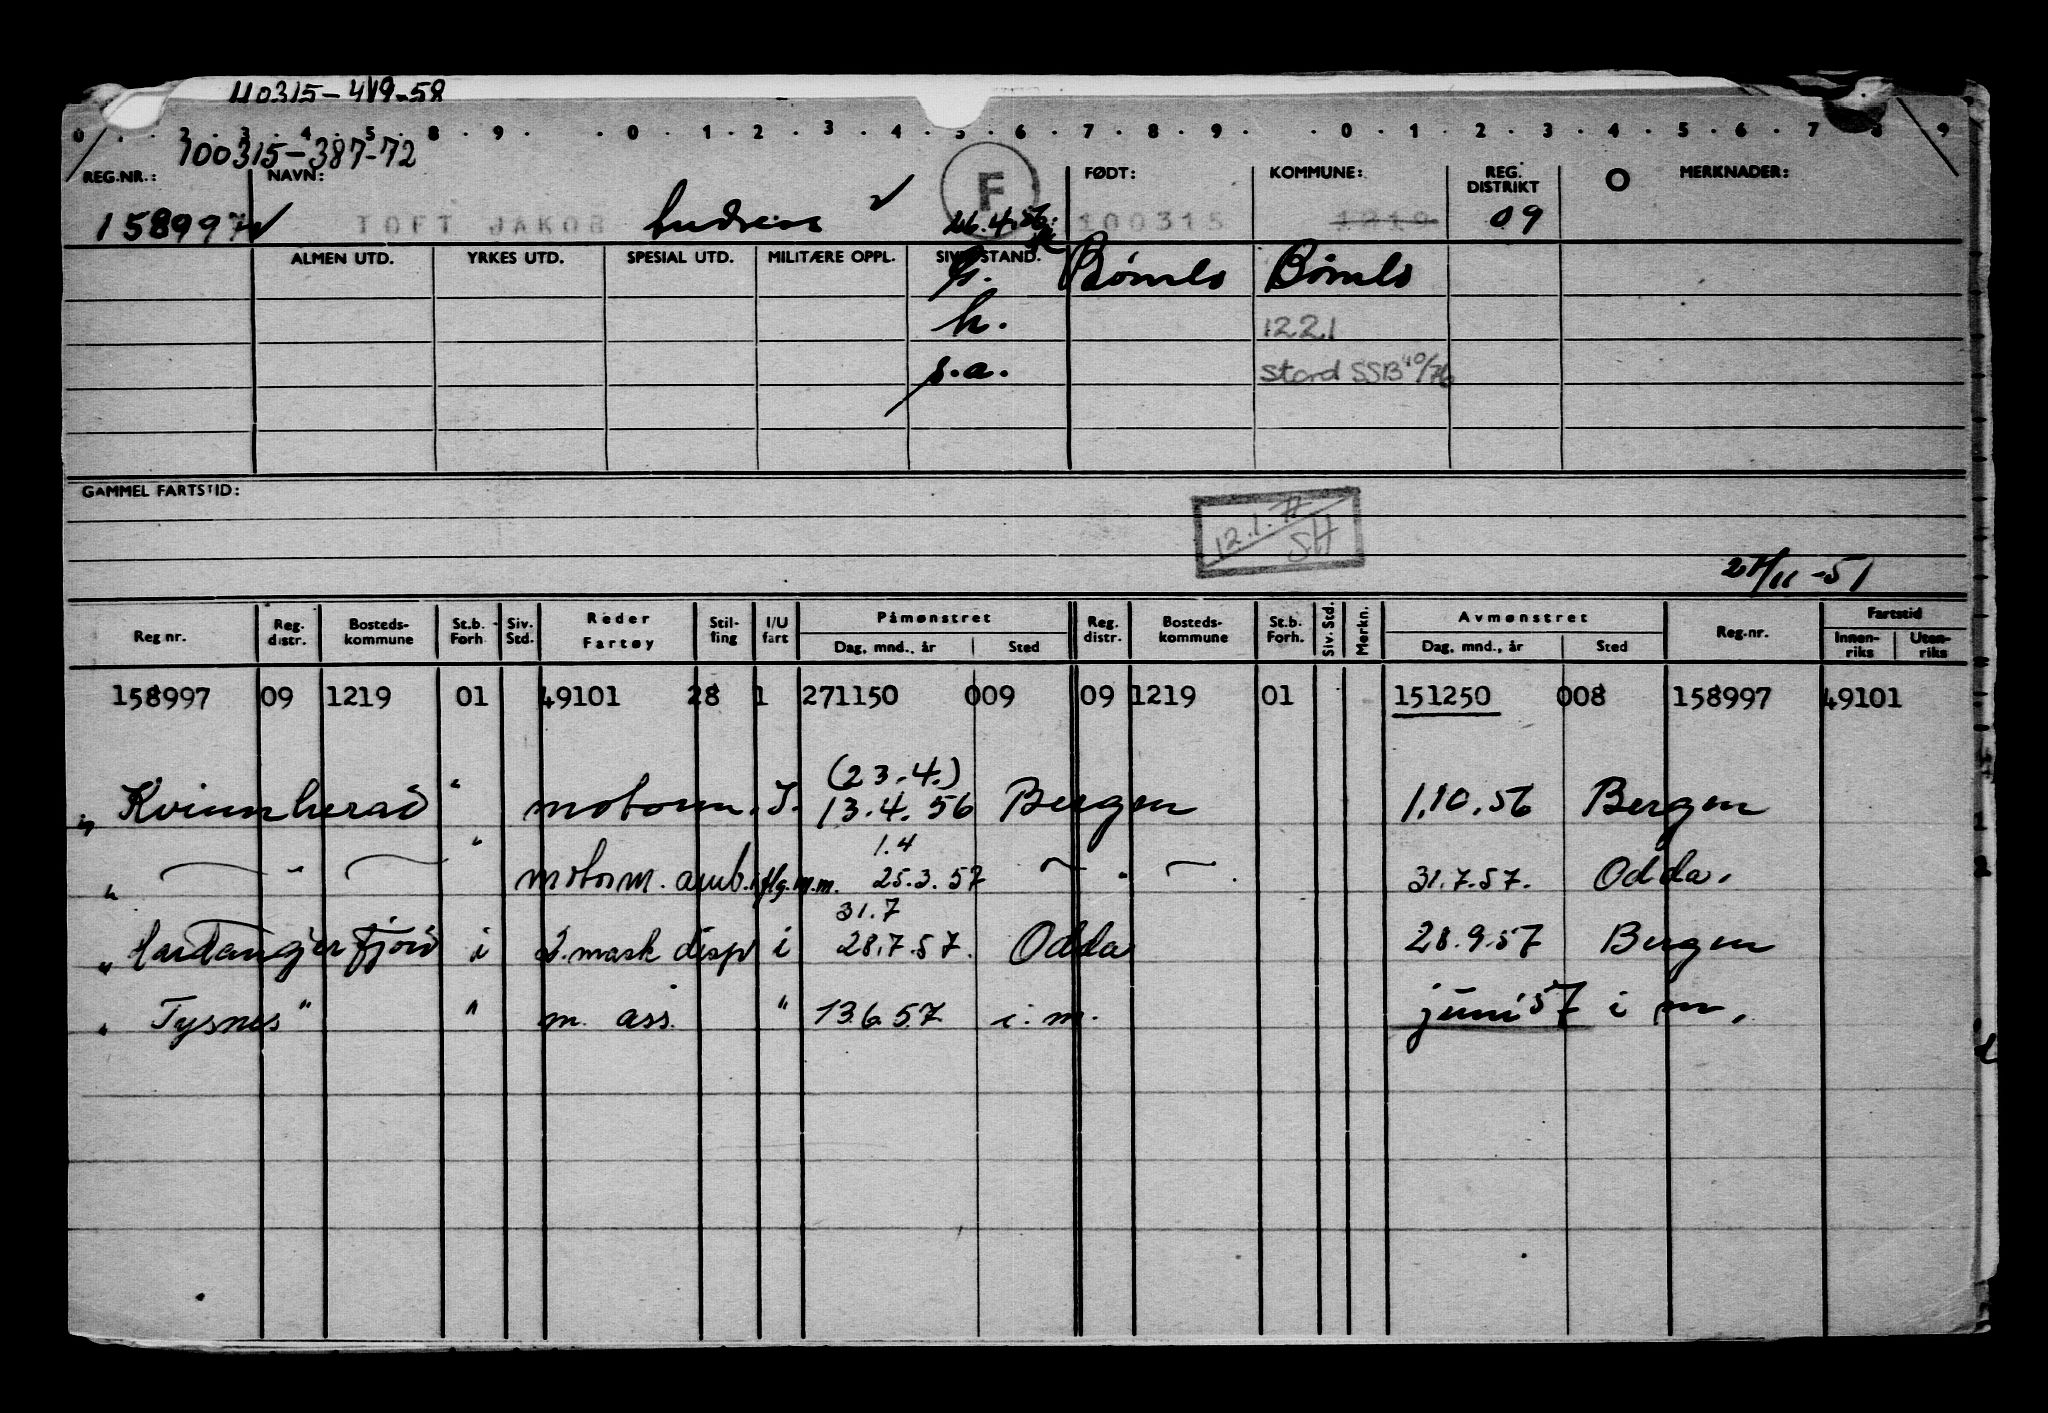 110315-419-58
0 . . 2 . 3 . 4 . 5 . 8 . 9 . . 0 . 1 . 2 . 3 . 4 . 5 . 6 . 7 . 8 . 9 . . 0 . 1 . 2 . 3 . 4 . 5 . 6 . 7 . 8 . 9
100315-387-72
REG.NR.: NAVN: F FØDT: KOMMUNE: REG. DISTRIKT O MERKNADER:
158997 TOFT JAKOB Andreas 26.4.56 100315 1219 09
ALMEN UTD. YRKES UTD. SPESIAL UTD. MILITÆRE OPPL. SIVILSTAND. Bømlo Bømlo
h. 1221
s.a. Stord SSB 40/76
GAMMEL FARTSTID:
12.1.77
SH
27/11-51
Reg nr. Reg. distr. Bosteds-kommune St.b. Forh. Siv. Std. Reder Fartøy Stil-ling I/U fart Påmønstret Dag, mnd., år Sted Reg. distr. Bosteds-kommune St.b. Forh. Siv. Std. Merkn. Avmønstret Dag, mnd., år Sted Reg.-nr. Fartstid Innen-riks Uten-riks
158997 09 1219 01 49101 28 1 271150 009 09 1219 01 151250 008 158997 49101
(23.4.)
" Kvinnherad " motorm. I. 13.4.56 Bergen 1.10.56 Bergen
1.4
" — " — " motorm. amb. flg. m.m. 25.3.57 — " — 31.7.57. Odda.
31.7
" Hardangerfjord i 2. mask disp i 28.7.57. Odda 28.9.57 Bergen
" Tysnes " " m. ass. " 13.6.57 i. m. juni 57 i m.